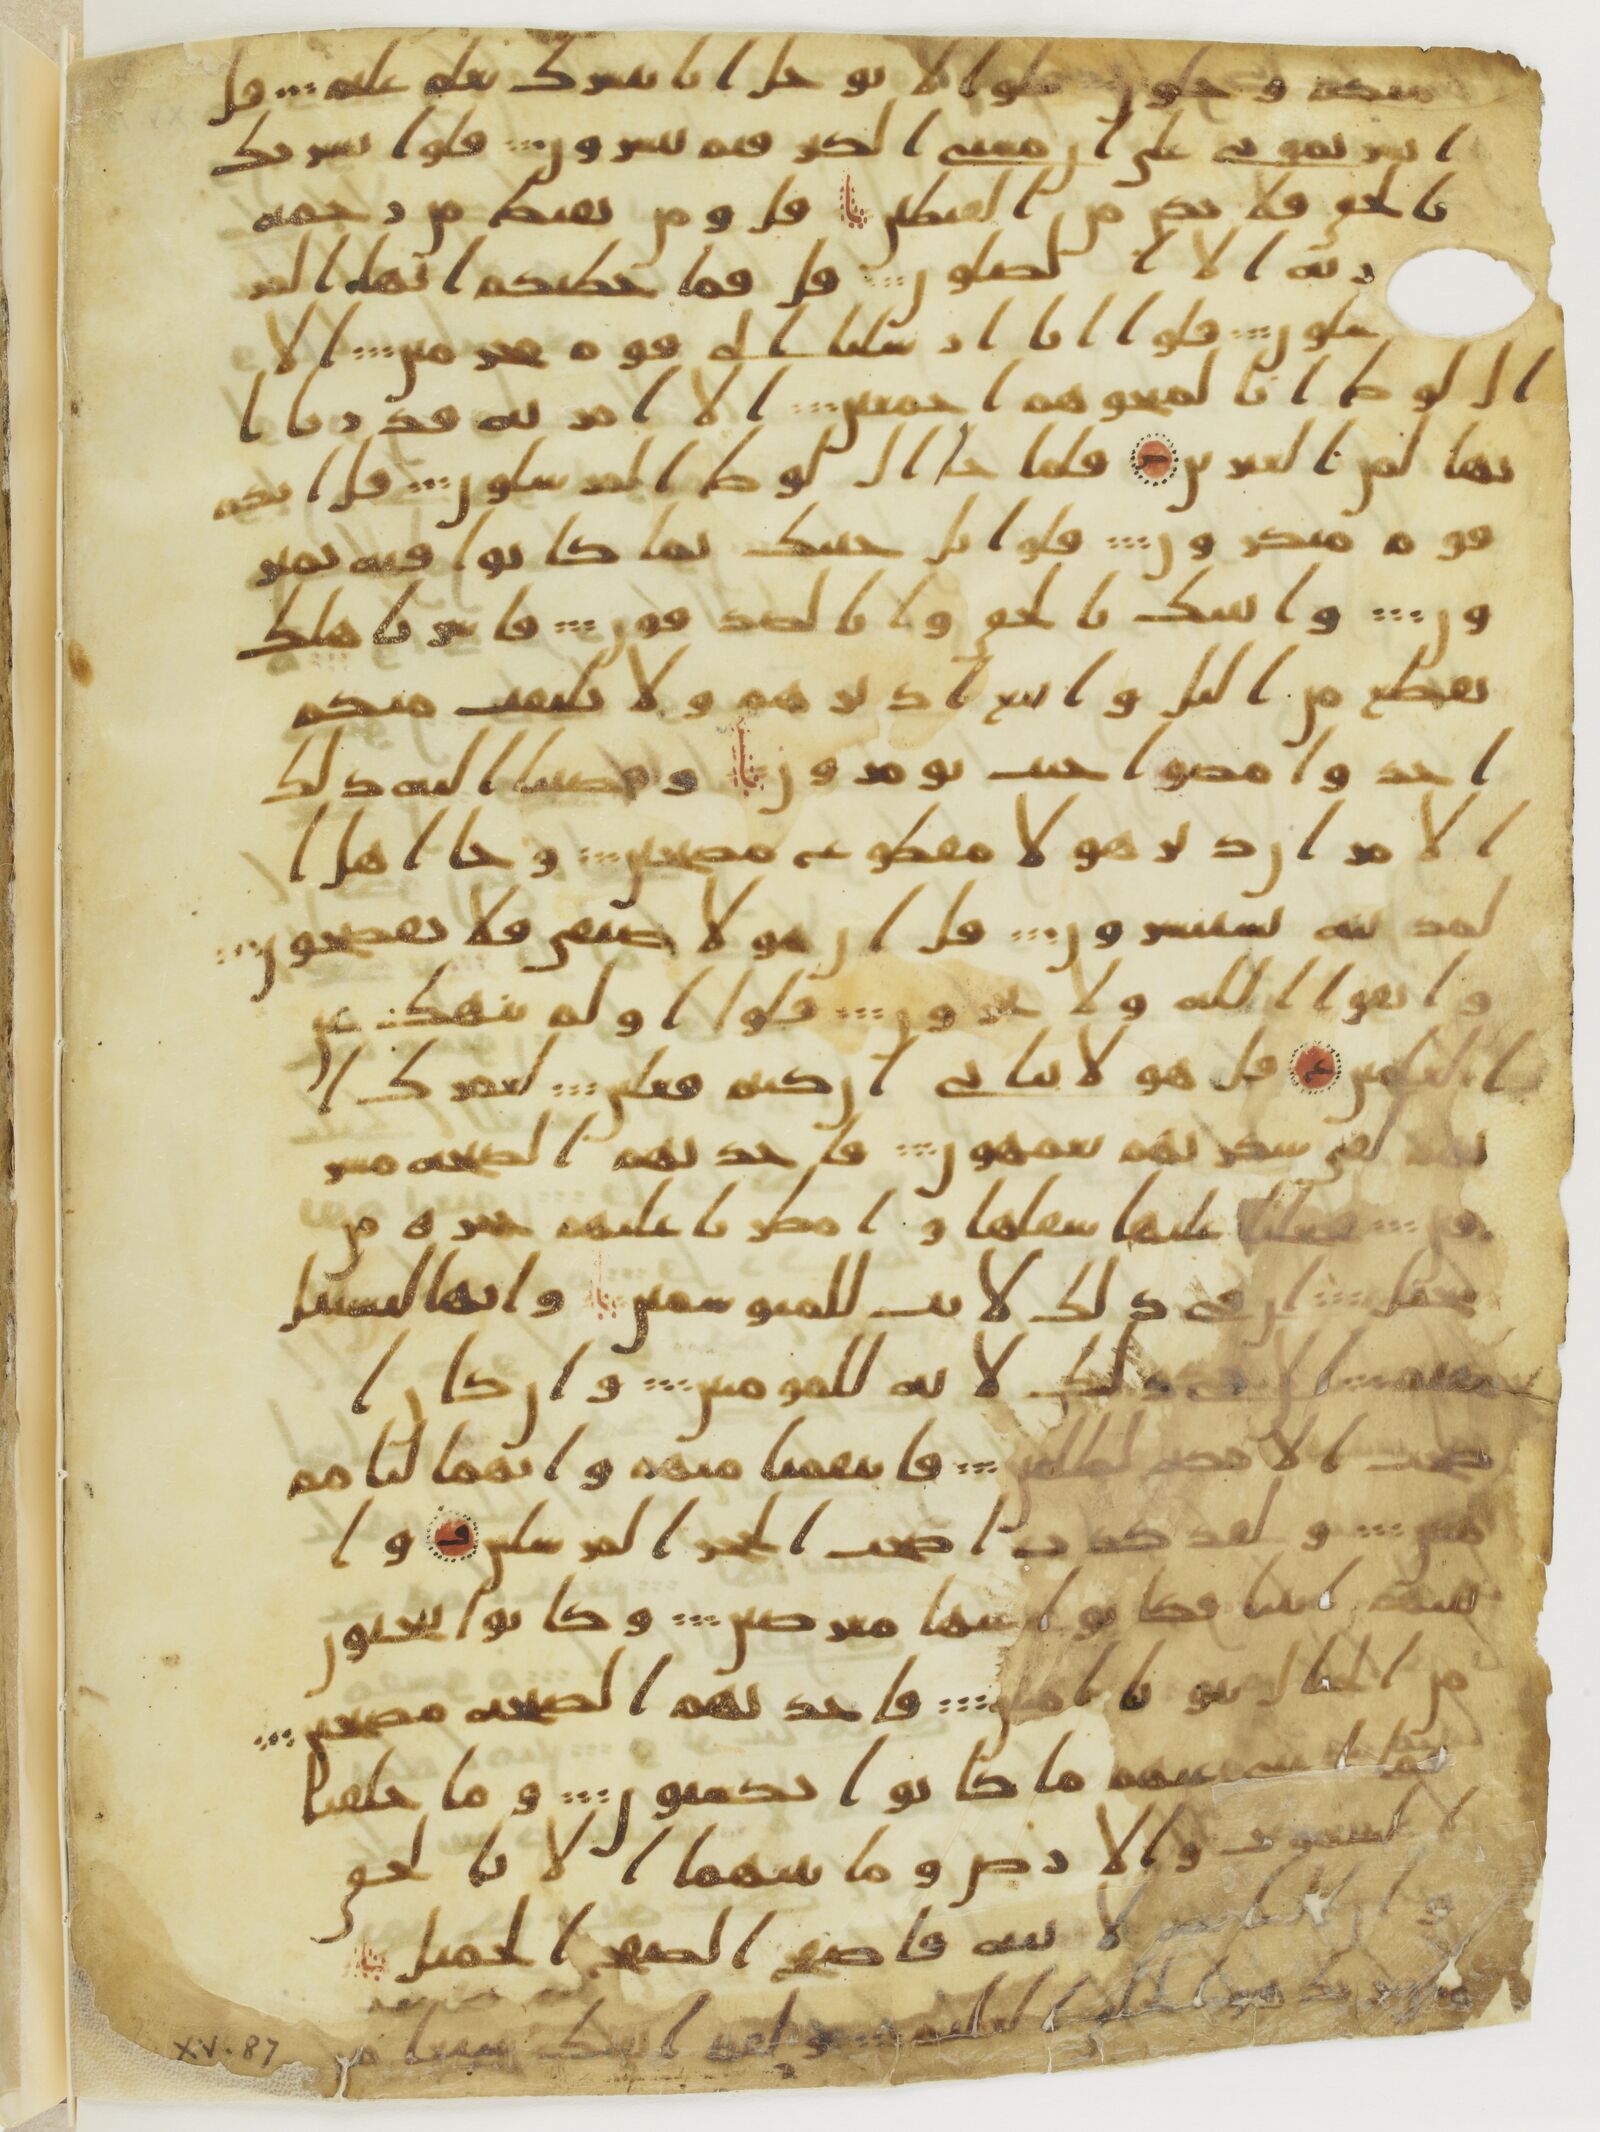 منكم وجلون قلوا لا توجل انا نبشرك بغلم عليم قل
ا بشرتموني على ان مسني الكبر فبم تبشرون قلوا بشرنك
بالحق فلا تكن من القنطين قل ومن يقنط من رحمه
ربه الا الضلون قل فما خطبكم ايها المر
سلون قلوا انا ارسلنا الى قوم مجرمين الا
ال لوط انا لمنجوهم اجمعين الا امرته قدرنا ا
نها لمن الغبرين فلما جا ال لوط المرسلون قل انكم
قوم منكرون قلوا بل جينك بما كانوا فيه يمتر
ون واتينك بالحق وانا لصدقون فاسر باهلك
بقطع من اليل واتبع ادبرهم ولا يلتفت منكم
احد وامضوا حيث تومرون وقضينا اليه ذلك
الامر ان دبر هولا مقطوع مصبحين وجا اهل ا
لمدينه يستبشرون قل ان هولا ضيفي فلا تفضحون
واتقوا الله ولا تخزون قلوا اولم ننهك عن
العلمين قل هولا بناتي ان كنتم فعلين لعمرك ا
نهم لفي سكرتهم يعمهون فاخذتهم الصيحه مشر
قين فجعلنا عليها سفلها وامطرنا عليهم حجره من
سجيل ان في ذلك لايت للمتوسمين وانها لبسبيل
مقيم ان في ذلك لايه للمومنين وان كان ا
صحب الايكه لظلمين فانتقمنا منهم وانهما لبامم
مبين ولقد كذب اصحب الحجر المرسلين وا
تينهم ايتنا فكانوا عنها معرضين وكانوا ينحتون
من الجبال بيوتا امنين فاخذتهم الصيحه مصبحين
فما اغنى عنهم ما كانوا يكسبون وما خلقنا
السموت والارض وما بينهما الا بالحق
وان الساعه لاتيه فاصفح الصفح الجميل
ان ربك هو الخلق العليم ولقد اتينك سبعا من
XV. 87